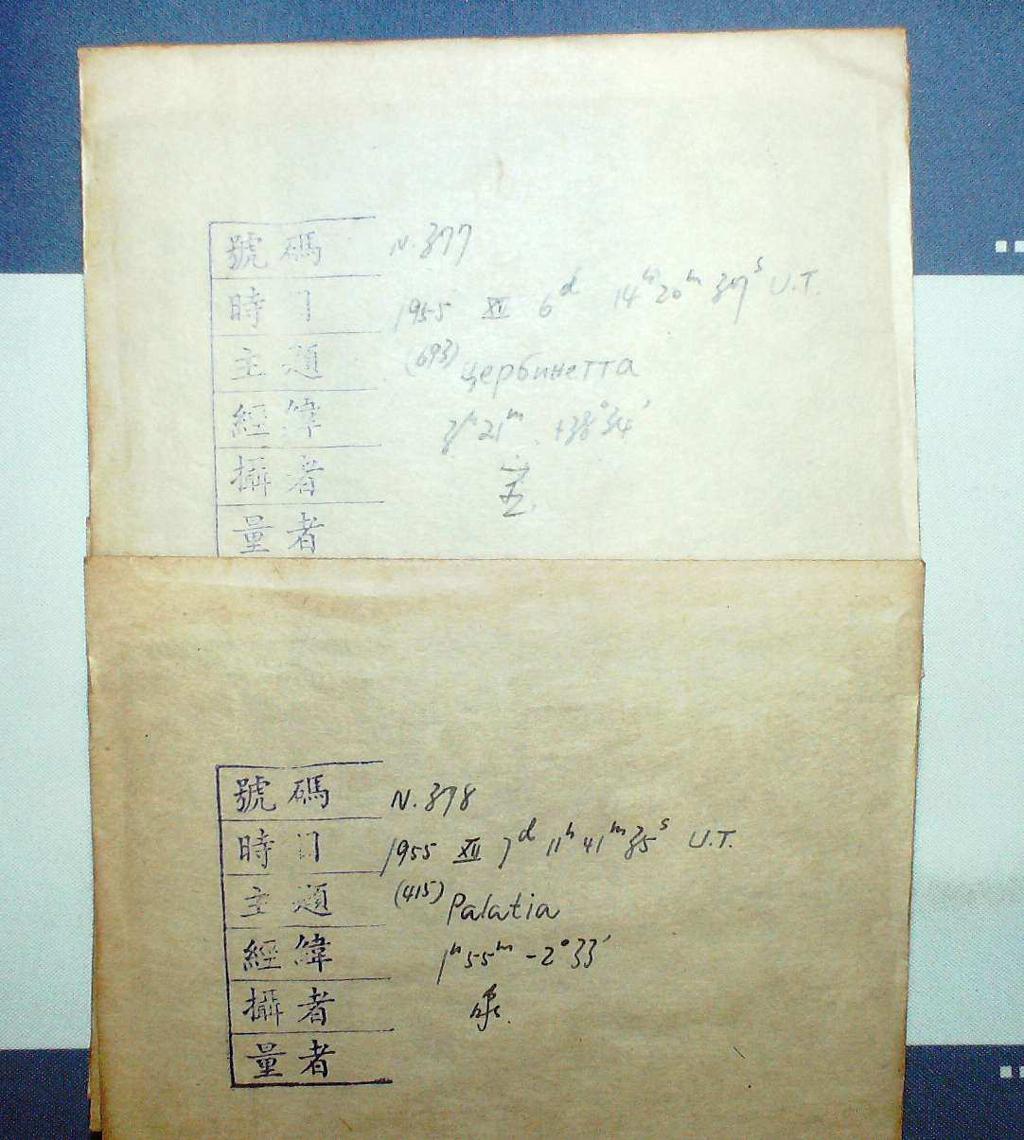 號碼 N.377
時间 1955 XII 6ᵈ 14ʰ 20ᵐ 37ˢ U.T.
主題 (693) Цербинетта
經緯 3ʰ 21ᵐ +38°34′
攝者
量者
號碼 N.378
時间 1955 XII 7ᵈ 11ʰ 41ᵐ 35ˢ U.T.
主題 (415) Palatia
經緯 1ʰ 55ᵐ -2°33′
攝者
量者